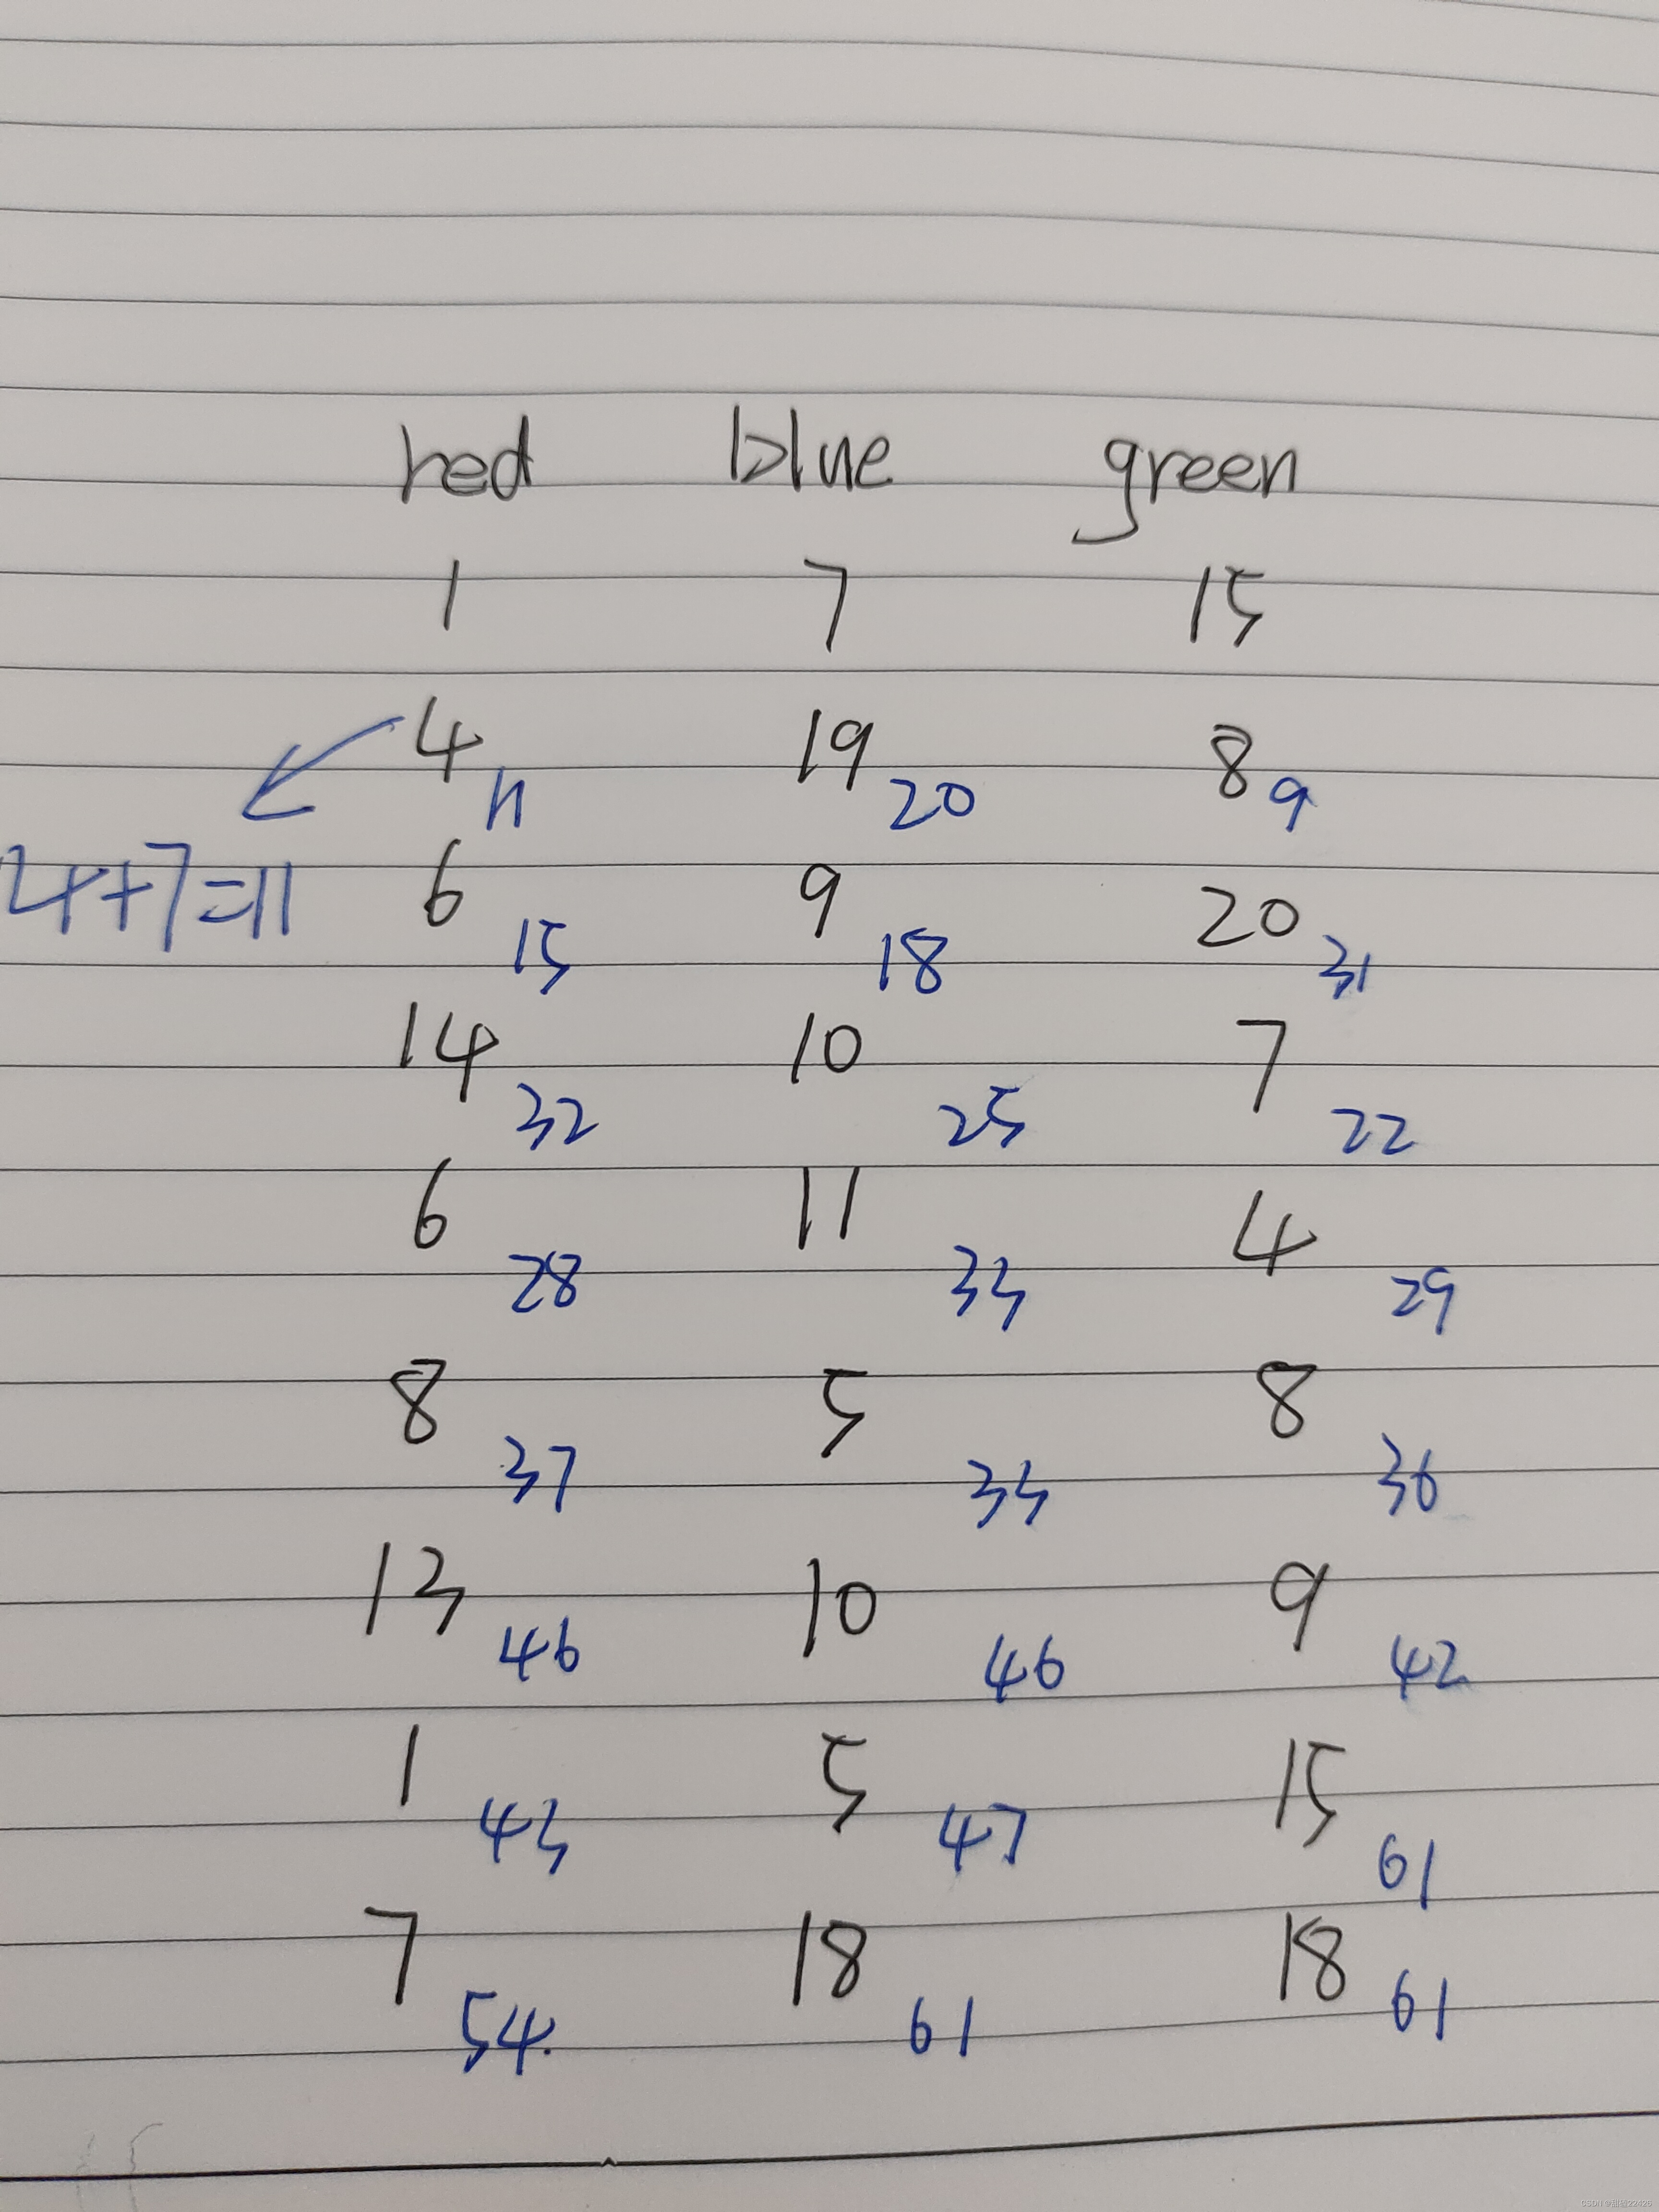 red blue green
1 7 15
4 19 8
11 20 9
4+7=11 6 9 20
15 18 31
14 10 7
32 25 22
6 11 4
28 33 29
8 5 8
37 33 36
13 10 9
46 46 42
1 5 15
43 47 61
7 18 18
54. 61 61